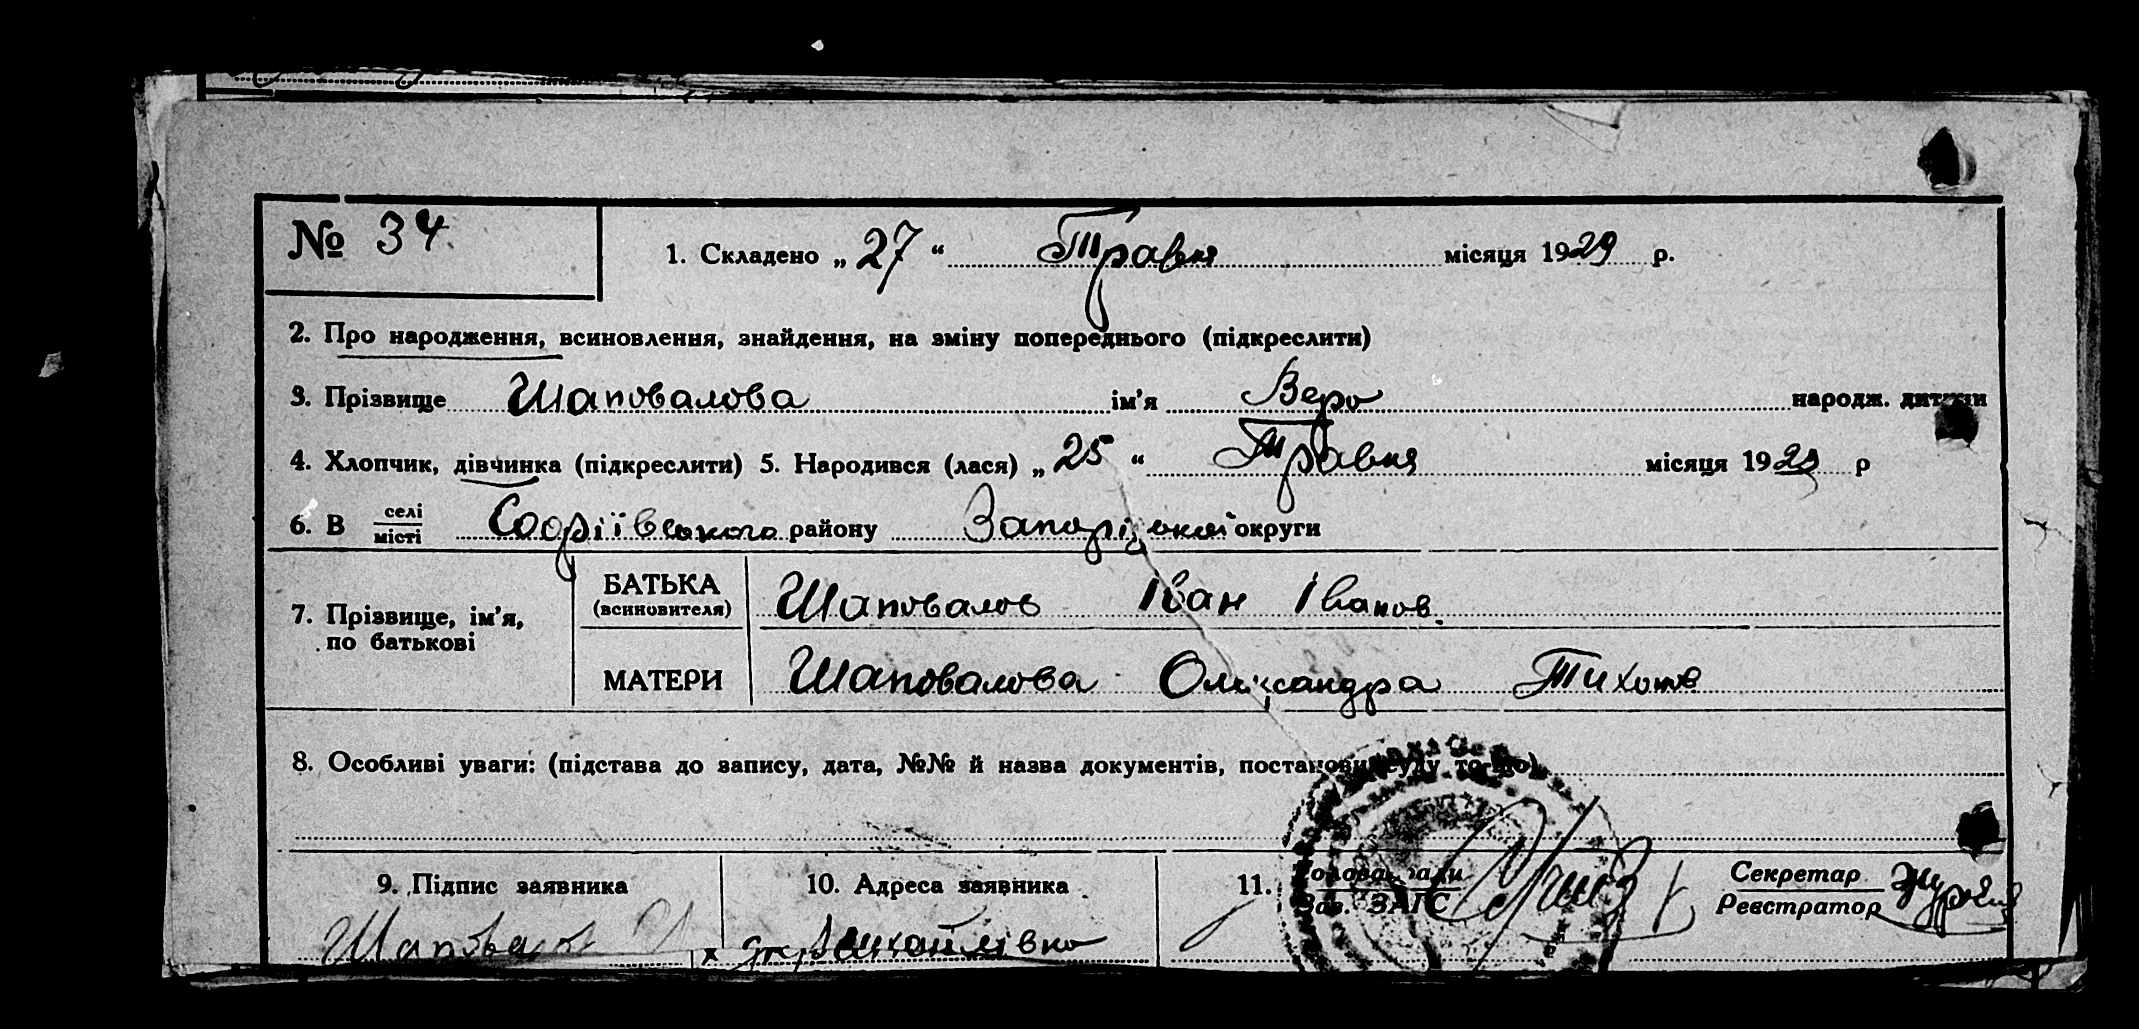 № 34.
1. Складено „ 27 “ Травня місяця 1929 р.
2. Про народження, всиновлення, знайдення, на зміну попереднього (підкреслити)
3. Прізвище Шаповалова ім’я Вера народж. дитини
4. Хлопчик, дівчинка (підкреслити) 5. Народився (лася) „ 25 “ Травня місяця 1929 р
6. В селі місті Софіївського району Запорізькоі округи
7. Прізвище, ім’я, по батькові
БАТЬКА (всиновителя) Шаповалов Іван Іванов.
МАТЕРИ Шаповалова Олександра Тихонов
8. Особливі уваги: (підстава до запису, дата, №№ й назва документів, постанови суду то-що)
9. Підпис заявника
Шаповалов
10. Адреса заявника
х Михайлівка
11. Голова ради
Зав. ЗАГС
Секретар
Реєстратор